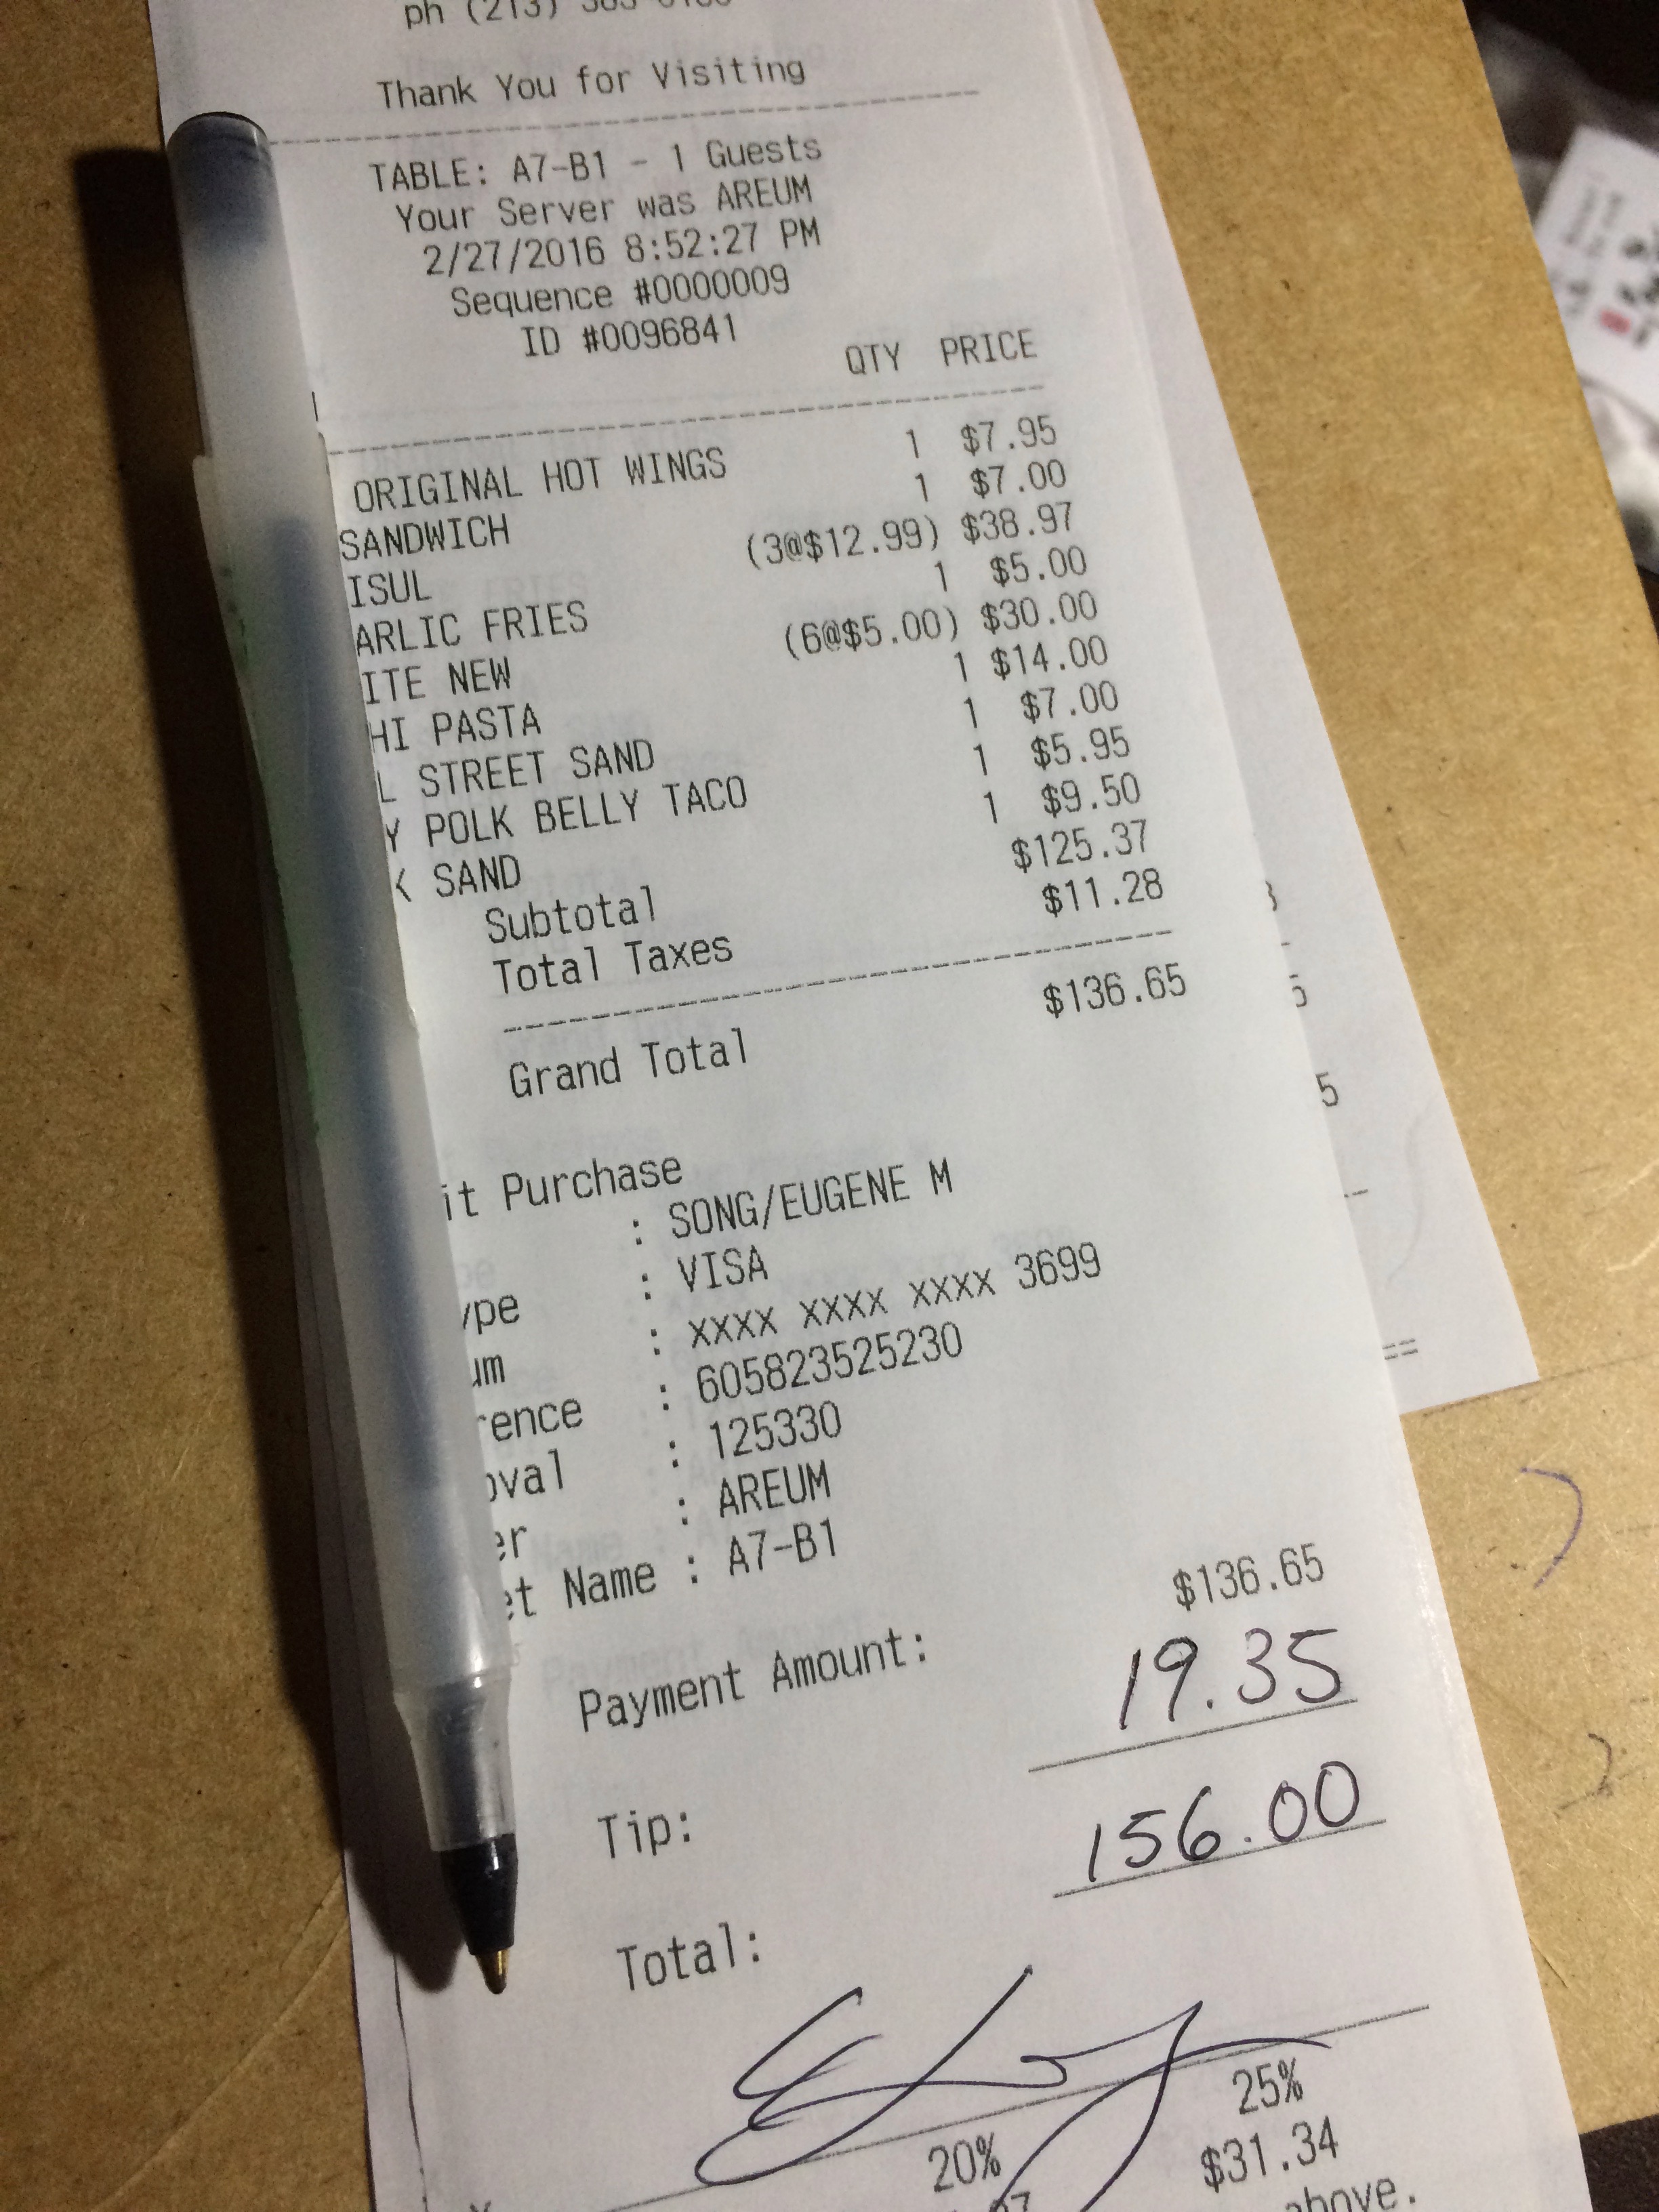 Thank You for Visiting
TABLE: A7-B1 - 1 Guests
Your Server was AREUM
2/27/2016 8:52:27 PM
Sequence #0000009
ID #0096841
QTY PRICE
ORIGINAL HOT WINGS 1 $7.95
SANDWICH 1 $7.00
ISUL (3@$12.99) $38.97
ARLIC FRIES 1 $5.00
ITE NEW (6@$5.00) $30.00
HI PASTA 1 $14.00
L STREET SAND 1 $7.00
Y POLK BELLY TACO 1 $5.95
K SAND 1 $9.50
Subtotal $125.37
Total Taxes $11.28
Grand Total $136.65
it Purchase
: SONG/EUGENE M
ype : VISA
um : XXXX XXXX XXXX 3699
rence : 605823525230
oval : 125330
er : AREUM
et Name : A7-B1
Payment Amount: $136.65
Tip: 19.35
Total: 156.00
20% 25%
$31.34
above.